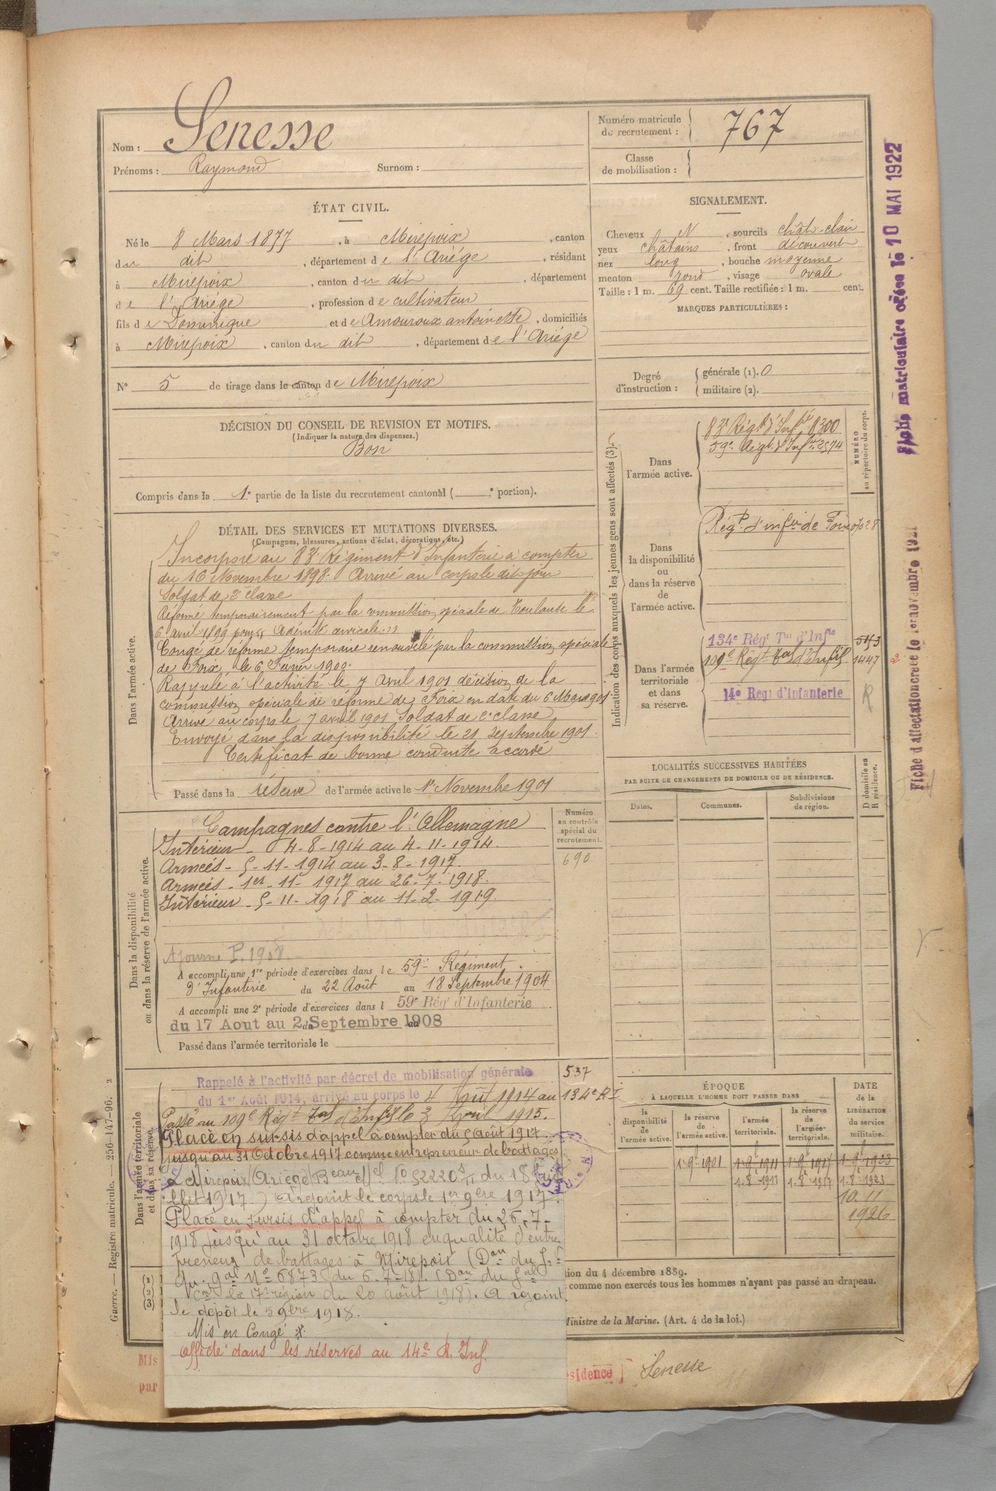 Nom : Senesse
Prénoms : Raymond Surnom :
Numéro matricule
de recrutement : 767
Classe
de mobilisation :
ÉTAT CIVIL.
Né le 8 Mars 1877, à Mirepoix, canton
du dit, département de l'Ariège, résidant
à Mirepoix, canton du dit, département
de l'Ariège, profession de cultivateur
fils de Dominique et de Amouroux antoinette, domiciliés
à Mirepoix, canton du dit, département de l'Ariège
SIGNALEMENT.
Cheveux N, sourcils chât-clair
yeux châtains, front découvert
nez long, bouche moyenne
menton rond, visage ovale
Taille : 1 m. 69 cent. Taille rectifiée : 1 m. cent.
MARQUES PARTICULIÈRES :
N° 5 de tirage dans le canton de Mirepoix
Degré
d'instruction :
générale (1). 0
militaire (2).
DÉCISION DU CONSEIL DE REVISION ET MOTIFS.
(Indiquer la nature des dispenses.)
Bon
Compris dans la 1e partie de la liste du recrutement cantonal ( e portion).
DÉTAIL DES SERVICES ET MUTATIONS DIVERSES.
(Campagnes, blessures, actions d'éclat, décorations, etc.)
Dans l'armée active.
Incorporé au 83e Régiment d'Infanterie à compter
du 16 Novembre 1898. Arrivé au corps le dit jour
Soldat de 2e classe
Réformé temporairement par la commission spéciale de Toulouse le
6 avril 1899 pour Adénite cervicale
Congé de réforme temporaire renouvelé par la commission spéciale
de Foix, le 6
Rappelé à l'activité le 7 Avril 1901 décision de la
commission spéciale de réforme de Foix en date du 6 Mars 1901
Arrivé au corps le 7 avril 1901 Soldat de 2e classe
Envoyé dans la disponibilité le 21 Septembre 1901.
Certificat de bonne conduite accordé
Passé dans la réserve de l'armée active le 1er Novembre 1901
Indication des corps auxquels les jeunes gens sont affectés (3).
Dans
l'armée active.
83e Régt d'Infie 8300
59e Régt d'Infie
NUMÉRO
au répertoire du corps.
Dans
la disponibilité
ou
dans la réserve
de
l'armée active.
Régt d'infie de Foix
Dans l'armée
territoriale
et dans
sa réserve.
134e Régt Tal d'Infie
109e Régt Tal d'Infie 1447
14e Regt d'Infanterie
R
LOCALITÉS SUCCESSIVES HABITÉES
PAR SUITE DE CHANGEMENTS DE DOMICILE OU DE RÉSIDENCE.
Dates. Communes. Subdivisions
de région.
D domicile ou
R résidence.
Dans la disponibilité
ou dans la réserve de l'armée active.
Numéro
au contrôle
spécial du
recrutement.
690
Campagnes contre l'Allemagne
Intérieur - 4-8-1914 au 4-11-1914.
Armées - 5-11-1914 au 3-8-1917.
Armées - 1er-11-1917 au 26-7-1918.
Intérieur - 5-11-1918 au 11-2-1919.
Ajourné P. 1908
A accompli une 1re période d'exercices dans le 59e Régiment
d'Infanterie du 22 Août au 18 Septembre 1904
A accompli une 2e période d'exercices dans l 59e Rég d'Infanterie
du 17 Aout au 2 Septembre 1908
Passé dans l'armée territoriale le
Dans l'armée territoriale
et dans sa réserve.
Rappelé à l'activité par décret de mobilisation générale
du 1er Août 1914, arrivé au corps le 4 Août 1914 au 134e RI
537
Passé au 109e Régt Tal d'Infie le 3 Avril 1915.
Placé en sursis d'appel à compter du 5 Août 1917
jusqu'au 31 Octobre 1917 comme entrepreneur de battages
à Mirepoix (Ariège) Beau el N° 52220 du 18 Jui
llet 1917) A rejoint le corps le 1er 9bre 1917.
Placé en sursis d'appel à compter du 26-7-
1918 jusqu'au 31 octobre 1918 en qualité d'entre
preneur de battages à Mirepoix (Don du
N° 6873 du 6-7-18. (Don du Gal
la 17e région du 20 août 1918). A rejoint
le dépôt le 5 9bre 1918.
Mis en Congé
Affecté dans les réserves au 14e R. Inf.
ÉPOQUE
À LAQUELLE L'HOMME DOIT PASSER DANS
la
disponibilité
de
l'armée active.
la réserve
de
l'armée active.
l'armée
territoriale.
la réserve
de
l'armée
territoriale.
DATE
de la
LIBÉRATION
du service
militaire.
1.9e 1901 1.9e 1911 1.9e 1917 1.9e 1923
1.8.1911 1.8.1917 1.8.1923
10.11
1926
tion du 4 décembre 1889.
comme non exercés tous les hommes n'ayant pas passé au drapeau.
Ministre de la Marine. (Art. 4 de la loi.)
(1)
(2)
(3)
Mis
par
sidence Senesse
Guerre. — Registre matricule. 256-147-96.
Fiche matriculaire créée le 10 MAI 1922
Fiche d'affectation créée le 1er novembre 1921